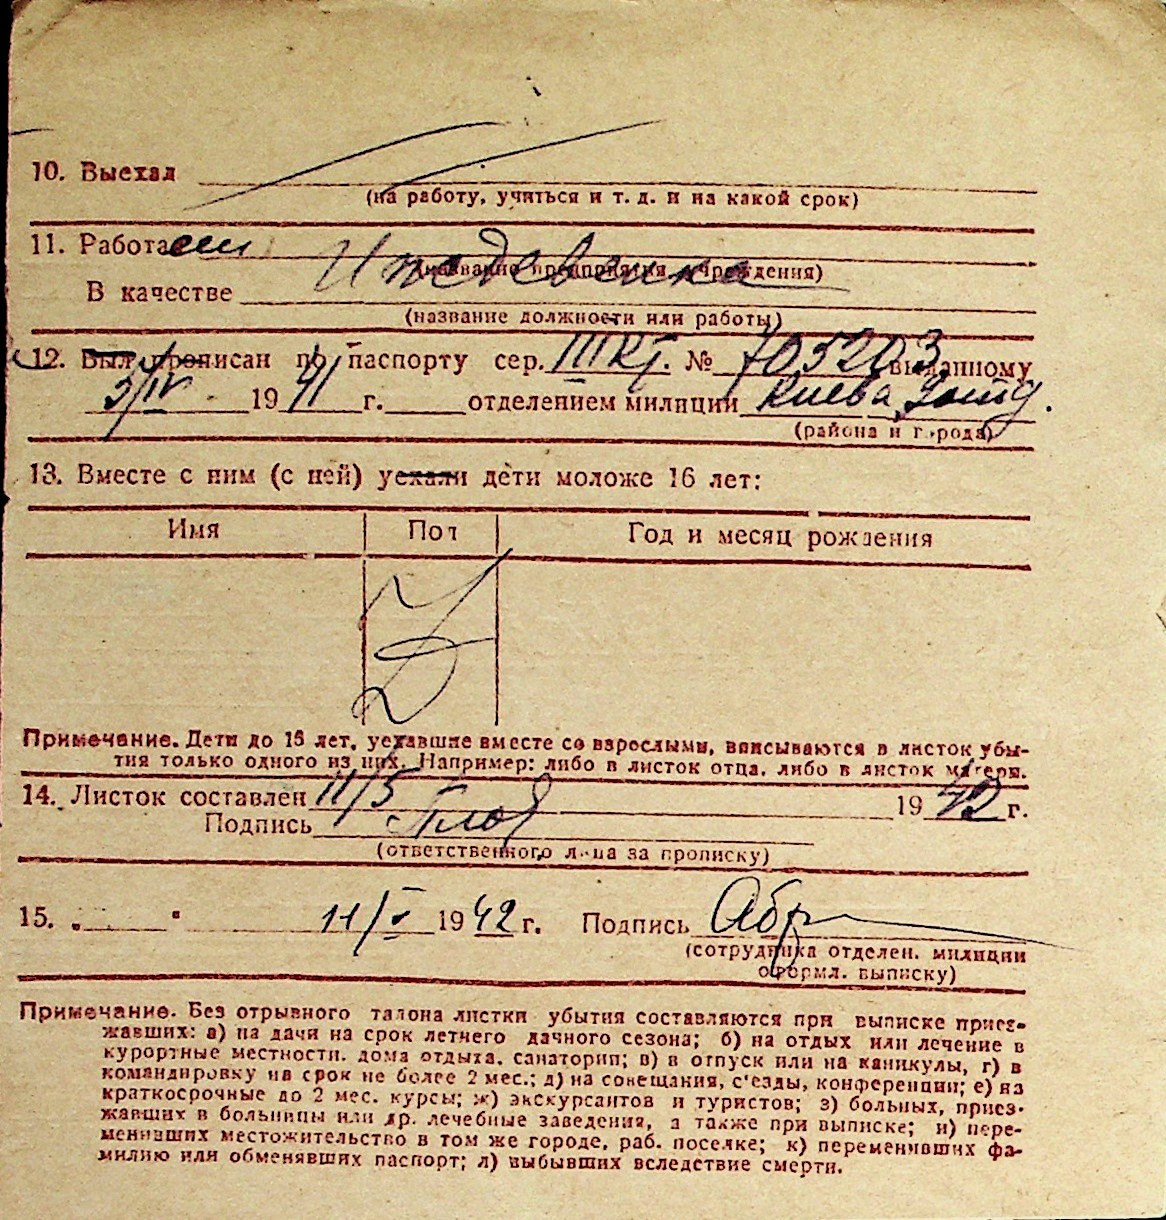 10. Выехал
(на работу, учиться и т. д. и на какой срок)
11. Работаеш Иждевенка
(название предприятия учреждения)
В качестве
(название должности или работы)
12. Был прописан по паспорту сер. III КГ. № 705203 выданному
3/IV 1941 г. отделением милиции Киева
(района и города)
13. Вместе с ним (с ней) уехали дети моложе 16 лет:
Имя Пол Год и месяц рождения
Примечание. Дети до 16 лет, уехавшие вместе со взрослыми, вписываются в листок убы-
тия только одного из них. Например: либо в листок отца, либо в листок матери.
14. Листок составлен 11/5 1942 г.
Подпись
(ответственного лица за прописку)
15. „ “ 11/V 1942 г. Подпись
(сотрудника отделен. милиции
оформл. выписку)
Примечание. Без отрывного талона листки убытия составляются при выписке приез-
жавших: а) на дачи на срок летнего дачного сезона; б) на отдых или лечение в
курортные местности, дома отдыха, санатории; в) в отпуск или на каникулы, г) в
командировку на срок не более 2 мес.; д) на совещания, с'езды, конференции; е) на
краткосрочные до 2 мес. курсы; ж) экскурсантов и туристов; з) больных, приез-
жавших в больницы или др. лечебные заведения, а также при выписке; и) пере-
менивших местожительство в том же городе, раб. поселке; к) переменивших фа-
милию или обменявших паспорт; л) выбывших вследствие смерти.